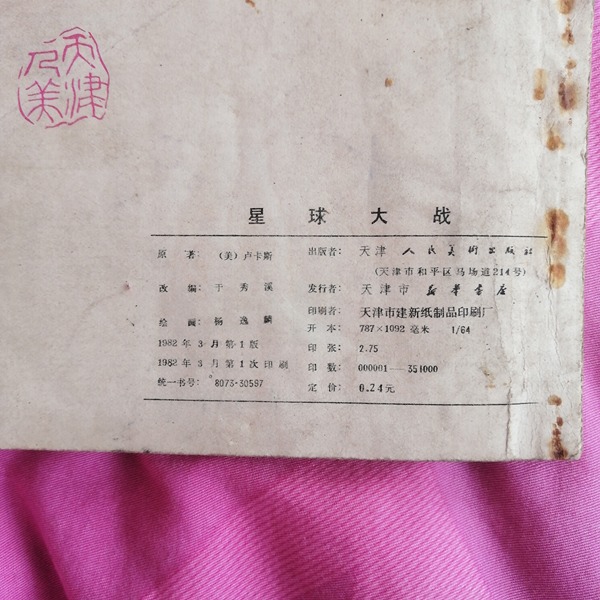 天津人美
星球大战
原 著: (美) 卢卡斯
改 编: 于 秀 溪
绘 画: 杨 逸 麟
1982 年 3 月 第 1 版
1982 年 3 月 第 1 次 印 刷
统一书号: 8073·30597
出版者: 天津 人民美術出版社
(天津市和平区马场道214号)
发行者: 天津市 新华书店
印刷者: 天津市建新纸制品印刷厂
开 本: 787×1092 毫米 1/64
印 张: 2.75
印 数: 000001—351000
定 价: 0.24 元